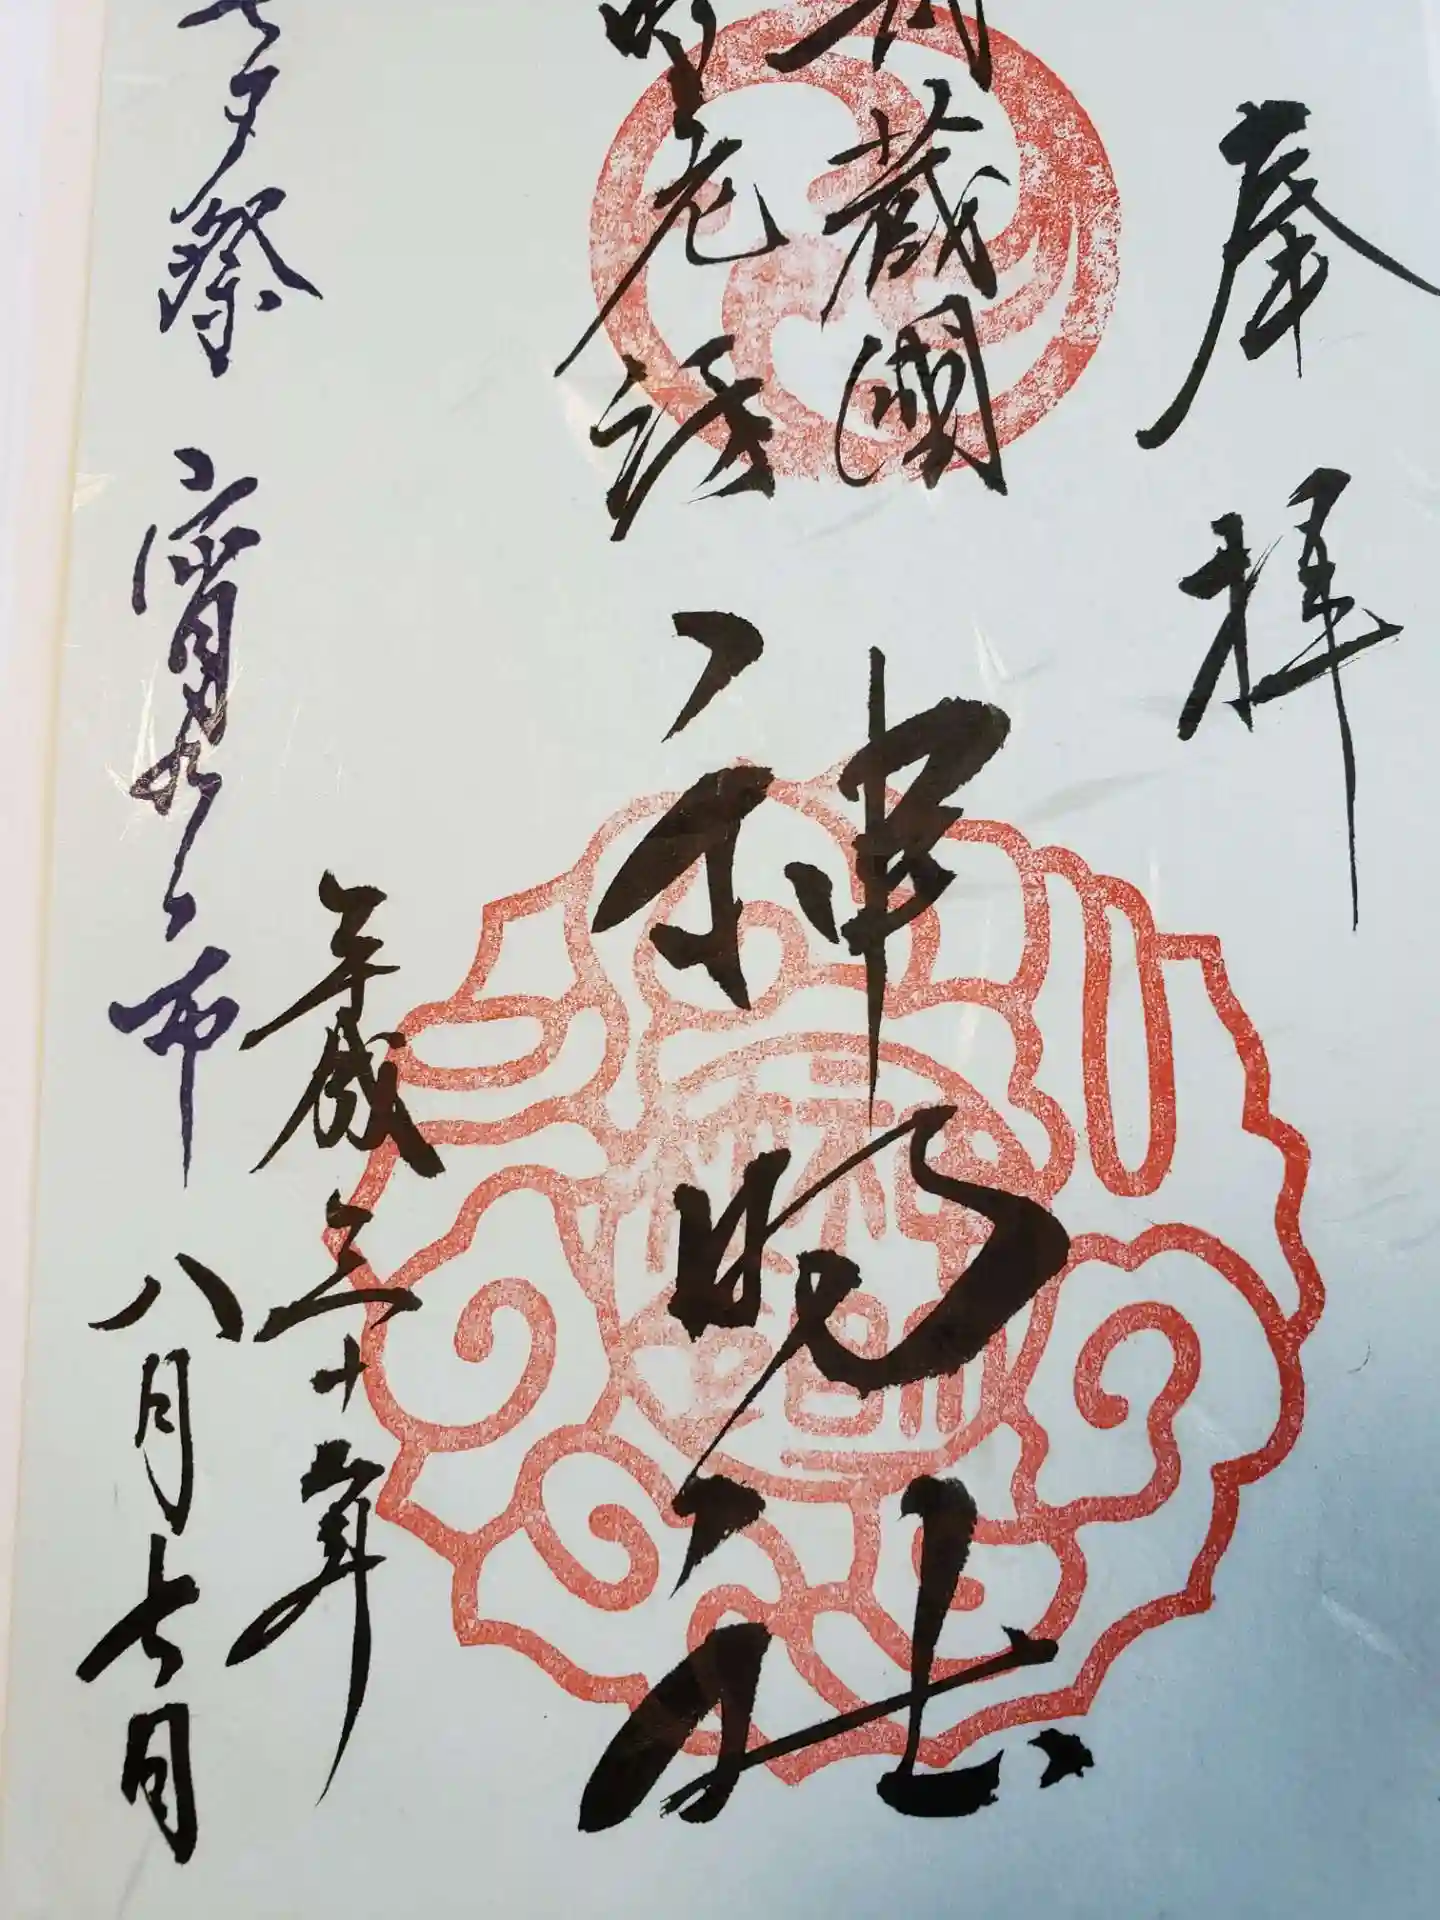 奉拝
武蔵國
野老澤
神明社
平成三十年
八月七日
七夕祭 宵 市